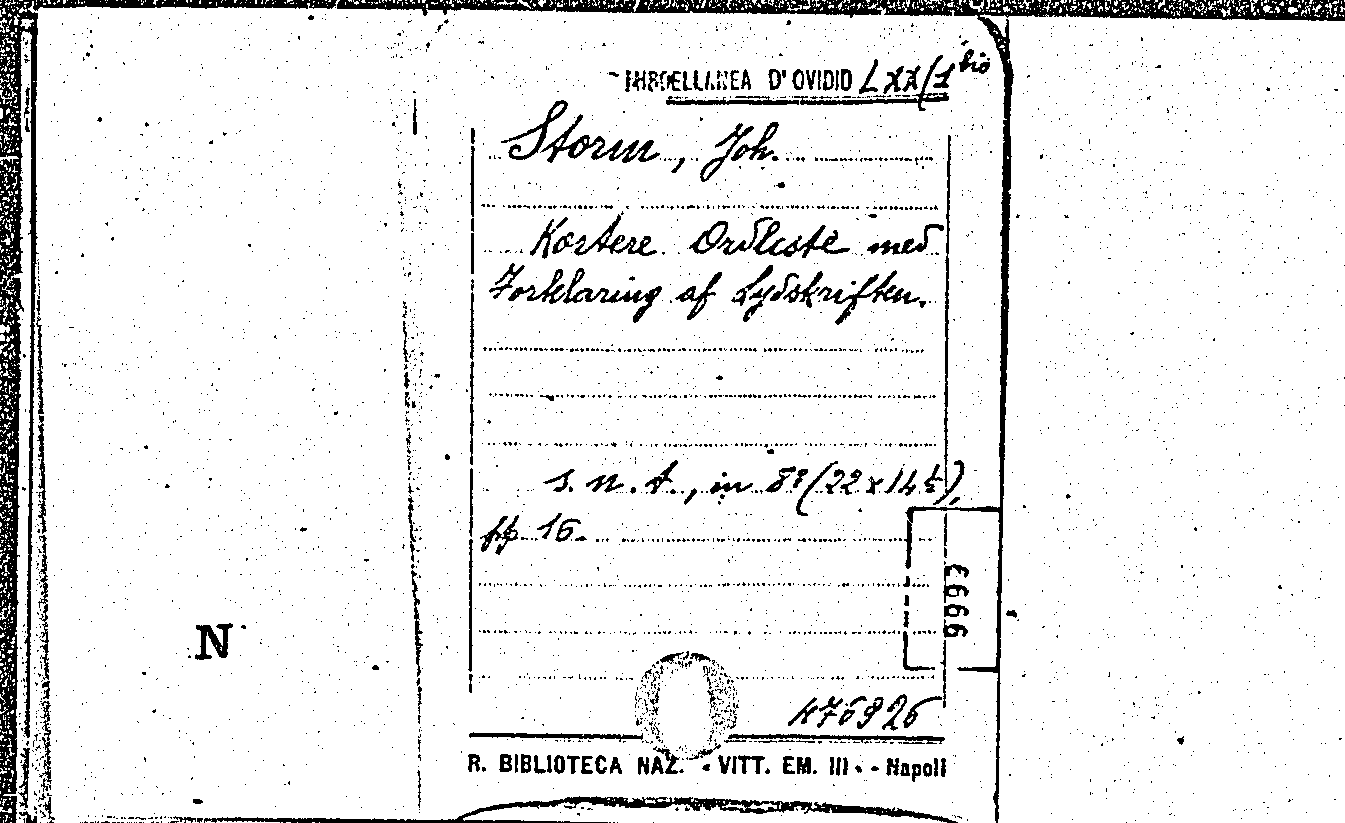 MISCELLANEA D'OVIDIO LXX/1 bis
Storm, Joh.
Kortere Ordliste med
Forklaring af Lydskriften.
s. n. t., in 8º (22 x 14 ½),
pp. 16.
6663
N
476926
R. BIBLIOTECA NAZ. "VITT. EM. III" - Napoli